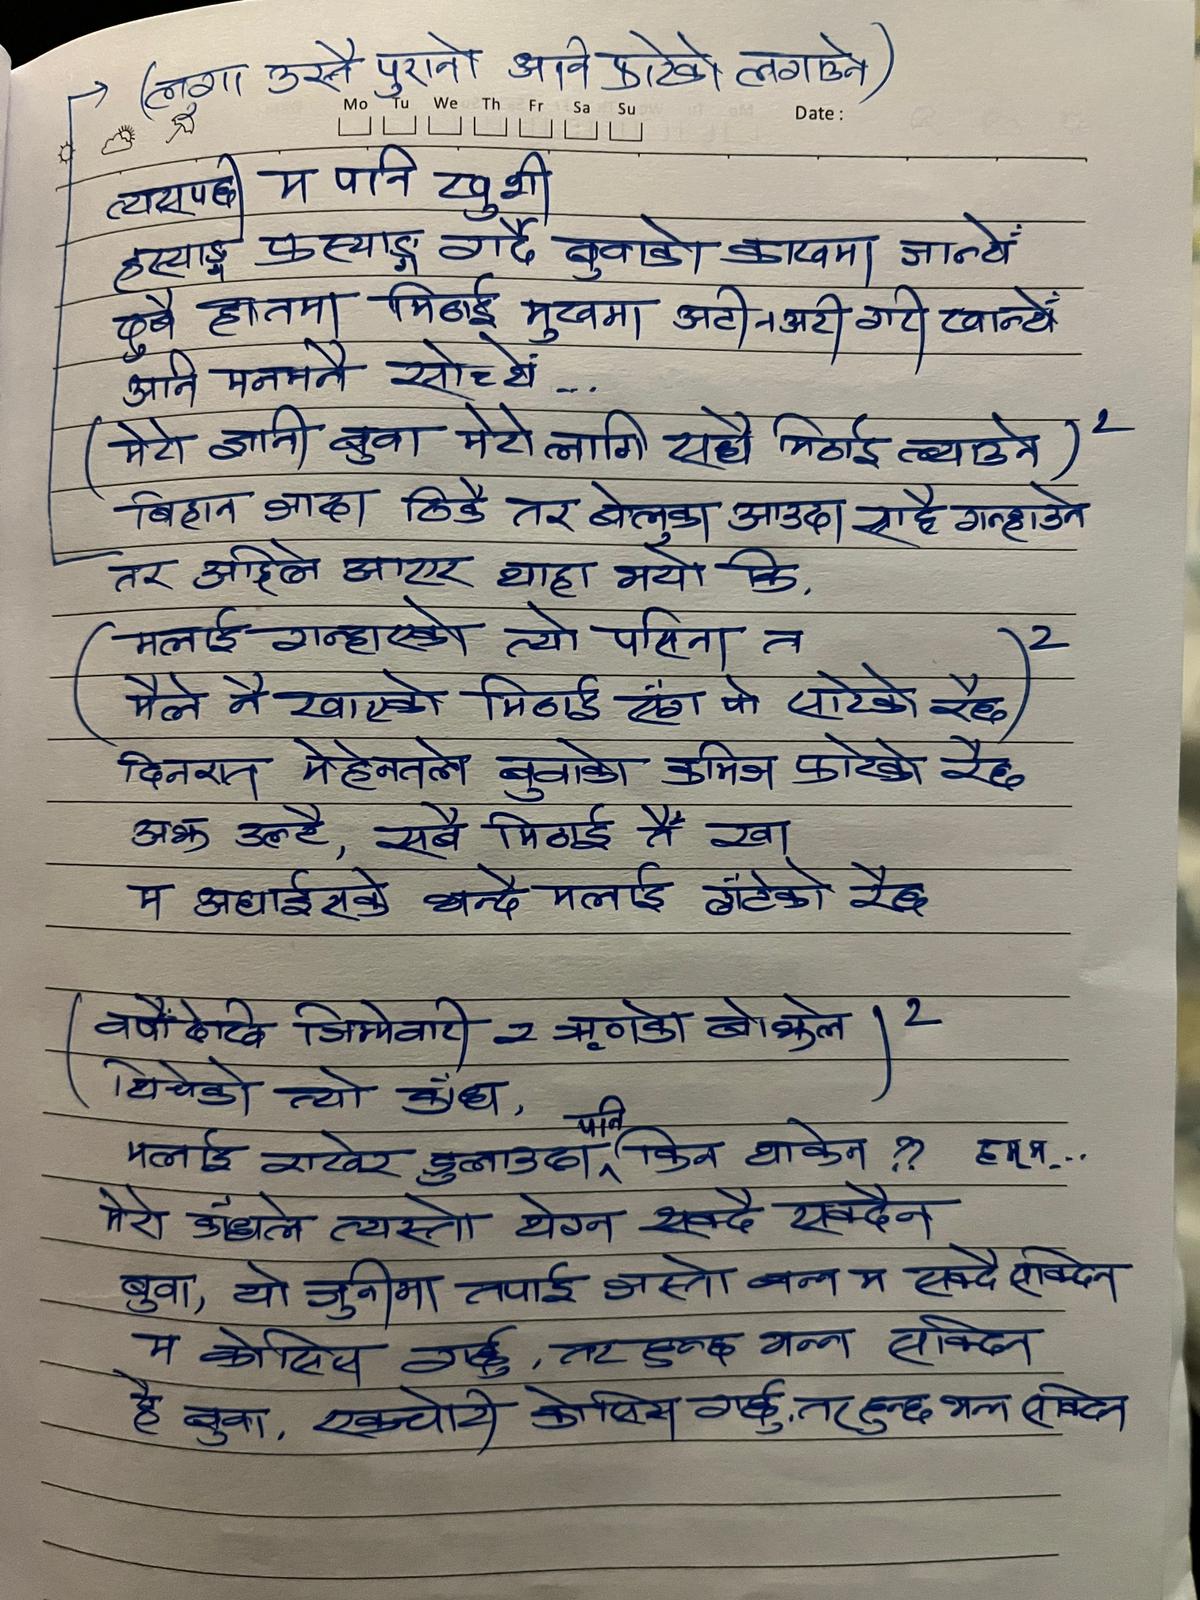 → (लुगा उस्तै पुरानो अनि फाटेको लगाउने)
Mo Tu We Th Fr Sa Su Date :
त्यसपछी म पानि खुशी
हस्याङ्ग फस्याङ्ग गर्दै बुवाको काखमा जान्थें
दुबै हातमा मिठाई मुखमा अटी नअटी गरी खान्थें
अनि मनमनै सोच्थें ...
(मेरो ज्ञानी बुवा मेरो लागि सधै मिठाई ल्याउने)²
बिहान जादा ठिकै तर बेलुका आउदा साह्रै गन्हाउने
तर अहिले आएर थाहा भयो कि,
(मलाई गन्हाएको त्यो पसिना त
मैले नै खाएको मिठाई संग पो साटेको रैछ)²
दिनरात मेहेनतले बुवाको कमिज फाटेको रैछ
अझ उल्टै, सबै मिठाई तैं खा
म अघाईसके भन्दै मलाई ढाँटेको रैछ
(वर्षौं देखि जिम्मेवारी र ऋणको बोझले
थिचेको त्यो काँध,)²
मलाई राखेर डुलाउदा पनि किन थाकेन ?? हम्म...
मेरो काँधले त्यस्तो थेग्न सक्दै सक्दैन
बुवा, यो जुनीमा तपाई जस्तो बन्न म सक्दै सक्दिन
म कोसिस गर्छु, तर हुन्छ भन्न सक्दिन
है बुवा, एकचोटी कोसिस गर्छु, तर हुन्छ भन्न सक्दिन